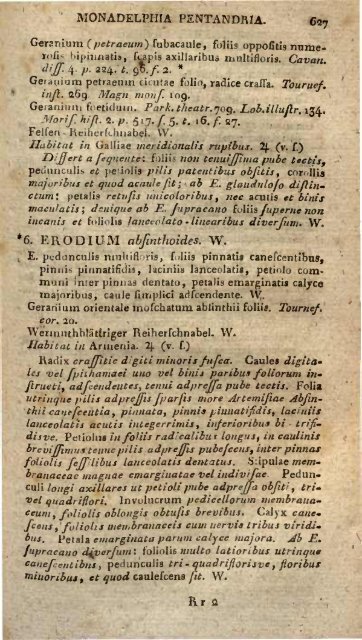 MONADELPHIA PENTANDRIA. 627
Geranium (petraeum) subacaule, foliis oppositis nume-
rosis bipinnatis, scapis axillaribus multifloris. Cavan.
diss. 4. p. 224. t. 96. f. 2. *
Geranium petraeum cicutae folio, radice crassa. Tournef.
inst. 269. Magn monsp. 109.
Geranium foetidum. Park. theatr. 709. Lob. illustr. 134.
Moris. hist. 2. p. 517. s. 5. t. 16. f. 27.
Felsen-Reiherschnabel. W.
Habitat in Galliae meridionalis rupibus. ♃ (v. s.)
Differt a sequente: foliis non tenuissima pube tectis,
pedunculis et petiolis pilis patentibus obsitis, corollis
majoribus et quod acaule sit; ab E. glanduloso distin-
ctum: petalis retusis unicoloribus, nec acutis et binis
maculatis; denique ab E. supracano foliis superne non
incanis et foliolis lanceolato-linearibus diversum. W.
*6. ERODIUM absinthoides. W.
E. pedunculis multifloris, foliis pinnatis canescentibus,
pinnis pinnatifidis, laciniis lanceolatis, petiolo com-
muni inter pinnas dentato, petalis emarginatis calyce
majoribus, caule simplici adscendente. W.
Geranium orientale moschatum absinthii foliis. Tournef.
cor. 20.
Wermuthblättriger Reiherschnabel. W.
Habitat in Armenia. ♃ (v. s.)
Radix crassitie digiti minoris fusca. Caules digita-
les vel spithamaei uno vel binis paribus foliorum in-
structi, adscendentes, tenui adpressa pube tectis. Folia
utrinque pilis adpressis sparsis more Artemisiae Absin-
thii canescentia, pinnata, pinnis pinnatifidis, laciniis
lanceolatis acutis integerrimis, inferioribus bi-trifi-
disve. Petiolus in foliis radicalibus longus, in caulinis
brevissimus tenue pilis adpressis pubescens, inter pinnas
foliolis sessilibus lanceolatis dentatus. Stipulae mem-
branaceae magnae emarginatae vel indivisae. Pedun-
culi longi axillares ut petioli pube adpressa obsiti, tri-
vel quadriflori. Involucrum pedicellorum membrana-
ceum, foliolis oblongis obtusis brevibus. Calyx cane-
scens, foliolis membranaceis cum nervis tribus viridi-
bus. Petala emarginata parum calyce majora. Ab E.
supracano diversum: foliolis multo latioribus utrinque
canescentibus, pedunculis tri-quadriflorisve, floribus
minoribus, et quod caulescens sit. W.
Rr 2